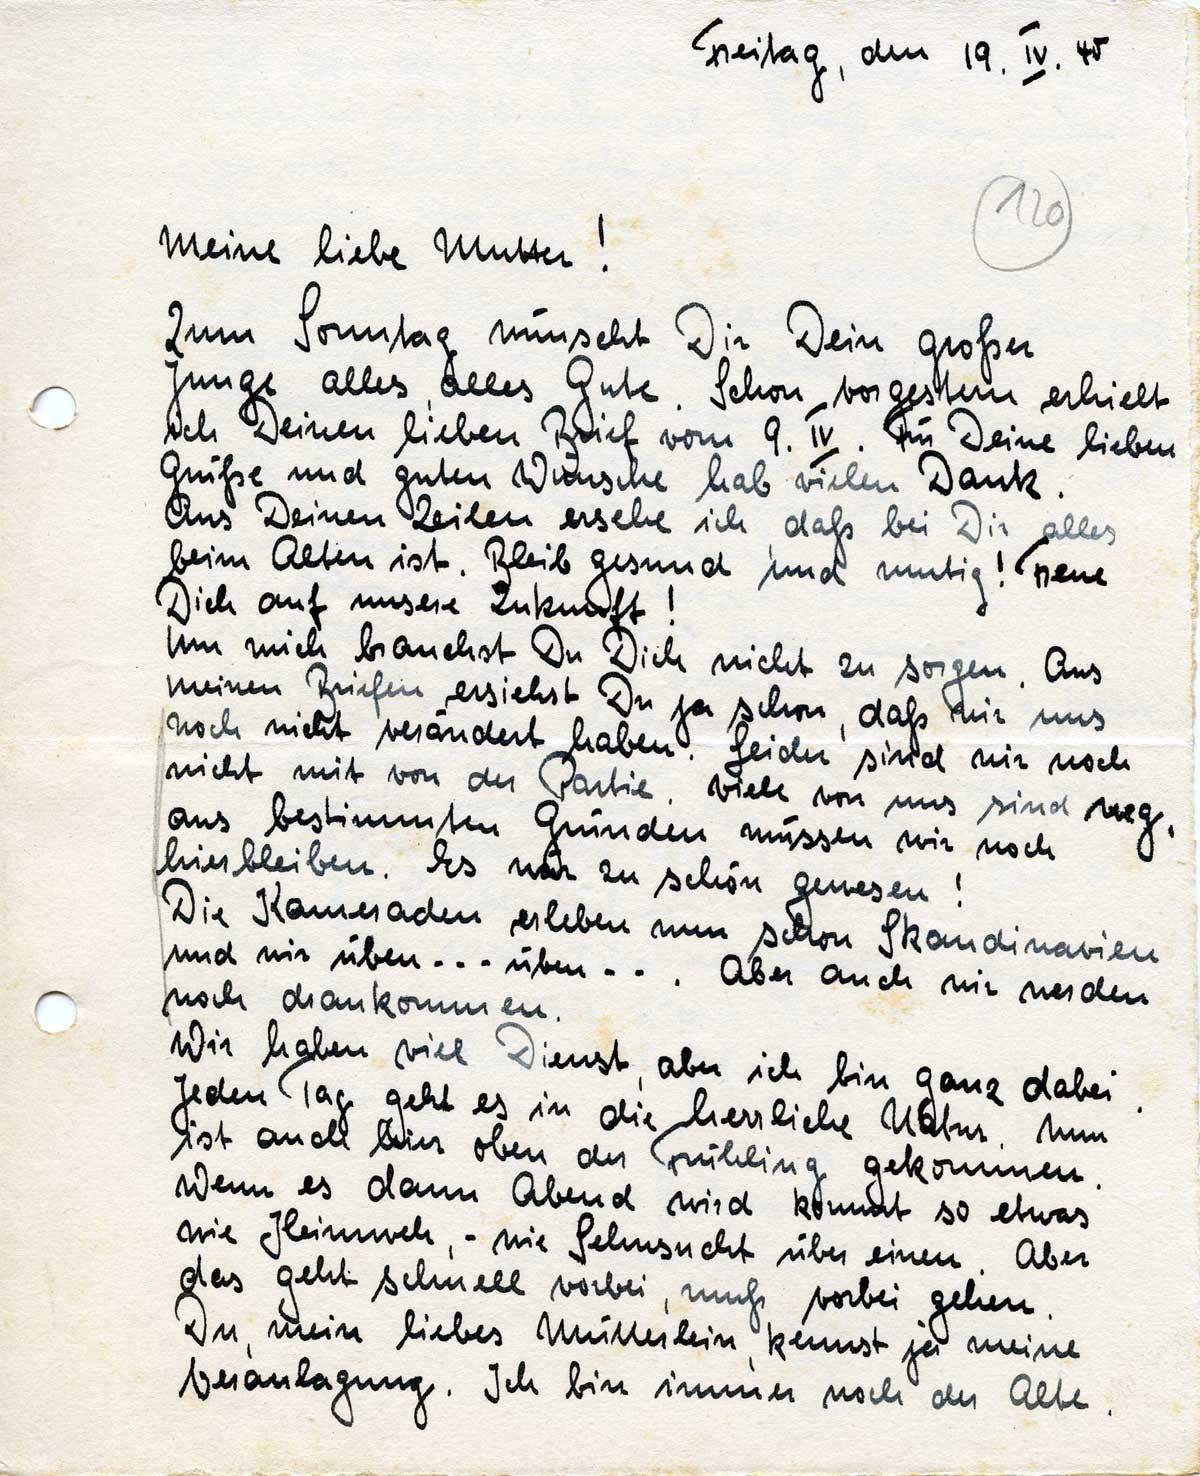 Freitag, den 19. IV. 40
120
Meine liebe Mutter!
Zum Sonntag wünscht Dir Dein großer
Junge alles, alles Gute. Schon vorgestern erhielt
ich Deinen lieben Brief vom 9. IV. Für Deine lieben
Grüße und guten Wünsche hab vielen Dank.
Aus Deinen Zeilen ersehe ich, daß bei Dir alles
beim Alten ist. Bleib gesund und mutig! Freue
Dich auf unsere Zukunft!
Um mich brauchst Du Dich nicht zu sorgen. Aus
meinen Briefen ersiehst Du ja schon, daß wir uns
noch nicht verändert haben. Leider sind wir noch
nicht mit von der Partie. Viele von uns sind weg,
aus bestimmten Gründen müssen wir noch
hierbleiben. Es wär zu schön gewesen!
Die Kameraden erleben nun schon Skandinavien
und wir üben --- üben --. Aber auch wir werden
noch drankommen.
Wir haben viel Dienst, aber ich bin ganz dabei.
Jeden Tag geht es in die herrliche Natur. Nun
ist auch hier oben der Frühling gekommen.
Wenn es dann Abend wird kommt so etwas
wie Heimweh, - wie Sehnsucht über einen. Aber
das geht schnell vorbei, muß vorbei gehen.
Du, mein liebes Mütterlein, kennst ja meine
Veranlagung. Ich bin immer noch der Alte.